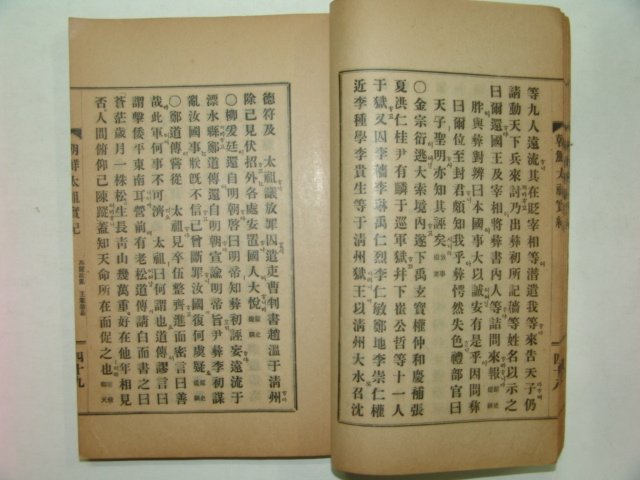 等九人遠流其在貶宰相等潛遣我等來告天子仍
請動天下兵來討乃出彝初所記穡等姓名以示之
曰爾還國王及宰相將彝書內人等詰問來報
胖與彝對辨曰本國事大以誠安有是乎因問彝
曰爾位至封君頗知我乎彝愕然失色禮部官曰
天子聖明亦知其誣矣
○金宗衍逃大索境內遂下禹玄寶權仲和慶補張
夏洪仁桂尹有麟于巡軍獄幷下崔公哲等十一人
于獄又囚李穡李琳禹仁烈李仁敏鄭地李崇仁權
近李種學李貴生等于清州獄王以清州大水召沈
四十八
德符及 太祖議放罪囚遣吏曹判書趙溫于清州
除已見伏招外各處安置國人大悅
○柳爰廷還自明朝啓曰明帝知彝初誣妄遠流于
漂水縣鄭道傳還自明朝宣諭明帝旨尹彝李初謀
亂汝國事朕旣不信已曾斷罪汝國復何虞疑
○鄭道傳嘗從 太祖見卒伍整齊進而密言曰善
哉此軍何事不可濟 太祖曰何謂也道傳謬言曰
謂擊倭平東南耳營前有老松道傳請白而書之曰
蒼茫歲月一株松生長青山幾萬重好在他年相見
否人間俯仰已陳蹤蓋知天命所在而促之也
朝鮮太祖實記
四十九